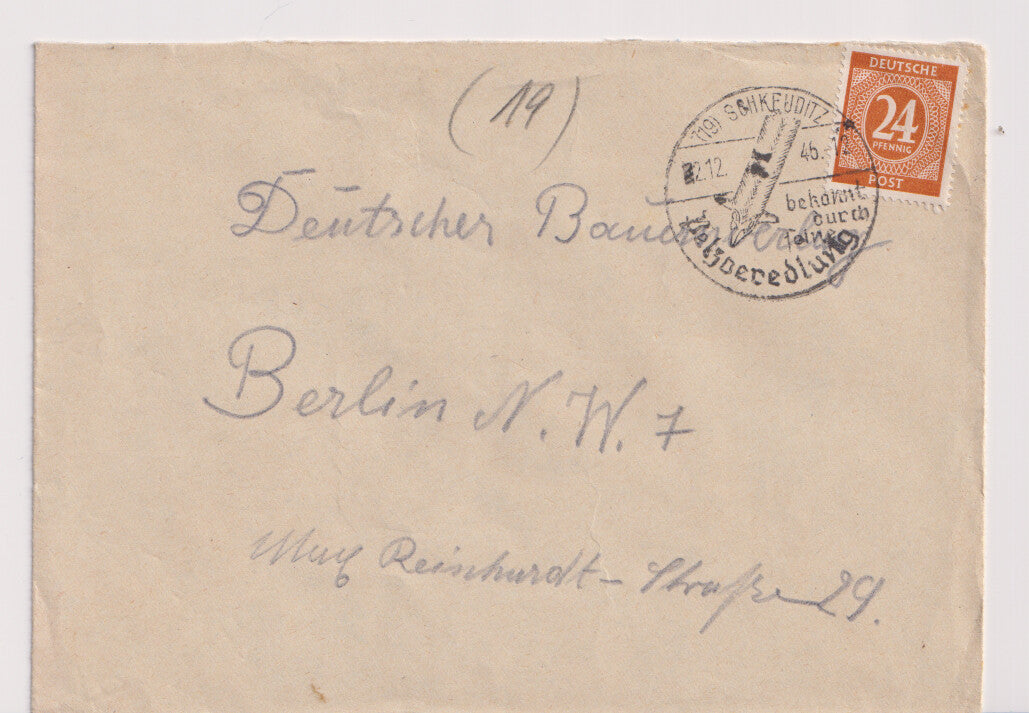 (19)
DEUTSCHE
24
PFENNIG
POST
(19) SCHKEUDITZ
2.12 46.
bekannt
durch
seine
Pelzveredlung
Deutscher Bauernverlag
Berlin N. W. 7
Max Reinhardt-Straße 29.